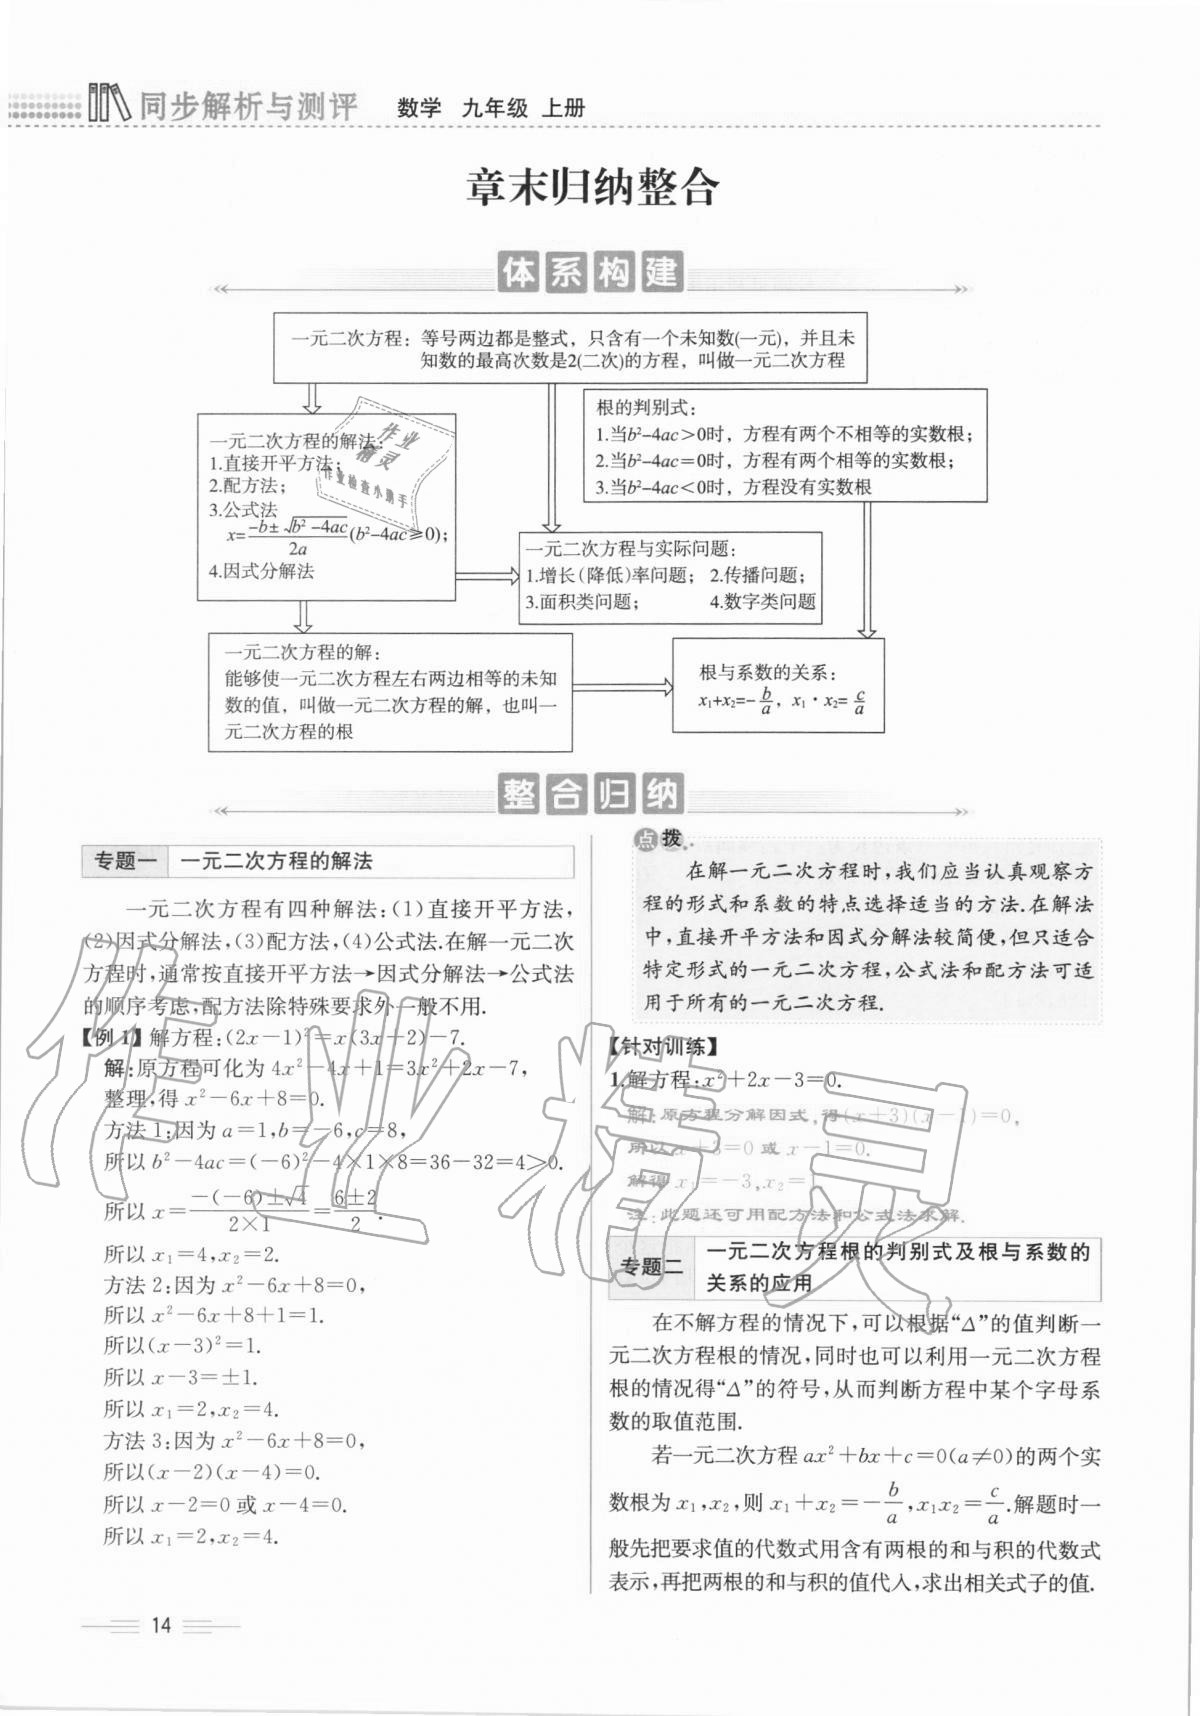 同步解析与测评 数学 九年级 上册
章末归纳整合
体系构建
一元二次方程：等号两边都是整式，只含有一个未知数(一元)，并且未
知数的最高次数是2(二次)的方程，叫做一元二次方程
根的判别式：
1.当b²-4ac＞0时，方程有两个不相等的实数根；
2.当b²-4ac＝0时，方程有两个相等的实数根；
3.当b²-4ac＜0时，方程没有实数根
一元二次方程的解法：
1.直接开平方法；
2.配方法；
3.公式法
x=(-b±√(b²-4ac))/(2a)(b²-4ac≥0)；
4.因式分解法
作业
精灵
作业检查小助手
一元二次方程与实际问题：
1.增长(降低)率问题； 2.传播问题；
3.面积类问题； 4.数字类问题
一元二次方程的解：
能够使一元二次方程左右两边相等的未知
数的值，叫做一元二次方程的解，也叫一
元二次方程的根
根与系数的关系：
x₁+x₂=-b/a，x₁·x₂=c/a
整合归纳
专题一 一元二次方程的解法
一元二次方程有四种解法:(1)直接开平方法,
(2)因式分解法,(3)配方法,(4)公式法.在解一元二次
方程时,通常按直接开平方法→因式分解法→公式法
的顺序考虑,配方法除特殊要求外一般不用.
【例1】解方程:(2x－1)²＝x(3x＋2)－7.
解:原方程可化为 4x²－4x＋1＝3x²＋2x－7,
整理,得 x²－6x＋8＝0.
方法 1:因为 a＝1,b＝－6,c＝8,
所以 b²－4ac＝(－6)²－4×1×8＝36－32＝4＞0.
所以 x＝(－(－6)±√4)/(2×1)＝(6±2)/2.
所以 x₁＝4,x₂＝2.
方法 2:因为 x²－6x＋8＝0,
所以 x²－6x＋8＋1＝1.
所以(x－3)²＝1.
所以 x－3＝±1.
所以 x₁＝2,x₂＝4.
方法 3:因为 x²－6x＋8＝0,
所以(x－2)(x－4)＝0.
所以 x－2＝0 或 x－4＝0.
所以 x₁＝2,x₂＝4.
点拨
在解一元二次方程时,我们应当认真观察方
程的形式和系数的特点选择适当的方法.在解法
中,直接开平方法和因式分解法较简便,但只适合
特定形式的一元二次方程,公式法和配方法可适
用于所有的一元二次方程.
【针对训练】
1.解方程:x²＋2x－3＝0.
解:原方程分解因式,得(x＋3)(x－1)＝0,
所以 x＋3＝0 或 x－1＝0.
解得 x₁＝－3,x₂＝
注:此题还可用配方法和公式法求解.
专题二 一元二次方程根的判别式及根与系数的
关系的应用
在不解方程的情况下,可以根据“Δ”的值判断一
元二次方程根的情况,同时也可以利用一元二次方程
根的情况得“Δ”的符号,从而判断方程中某个字母系
数的取值范围.
若一元二次方程 ax²＋bx＋c＝0(a≠0)的两个实
数根为 x₁,x₂,则 x₁＋x₂＝－b/a,x₁x₂＝c/a.解题时一
般先把要求值的代数式用含有两根的和与积的代数式
表示,再把两根的和与积的值代入,求出相关式子的值.
作业精灵
14